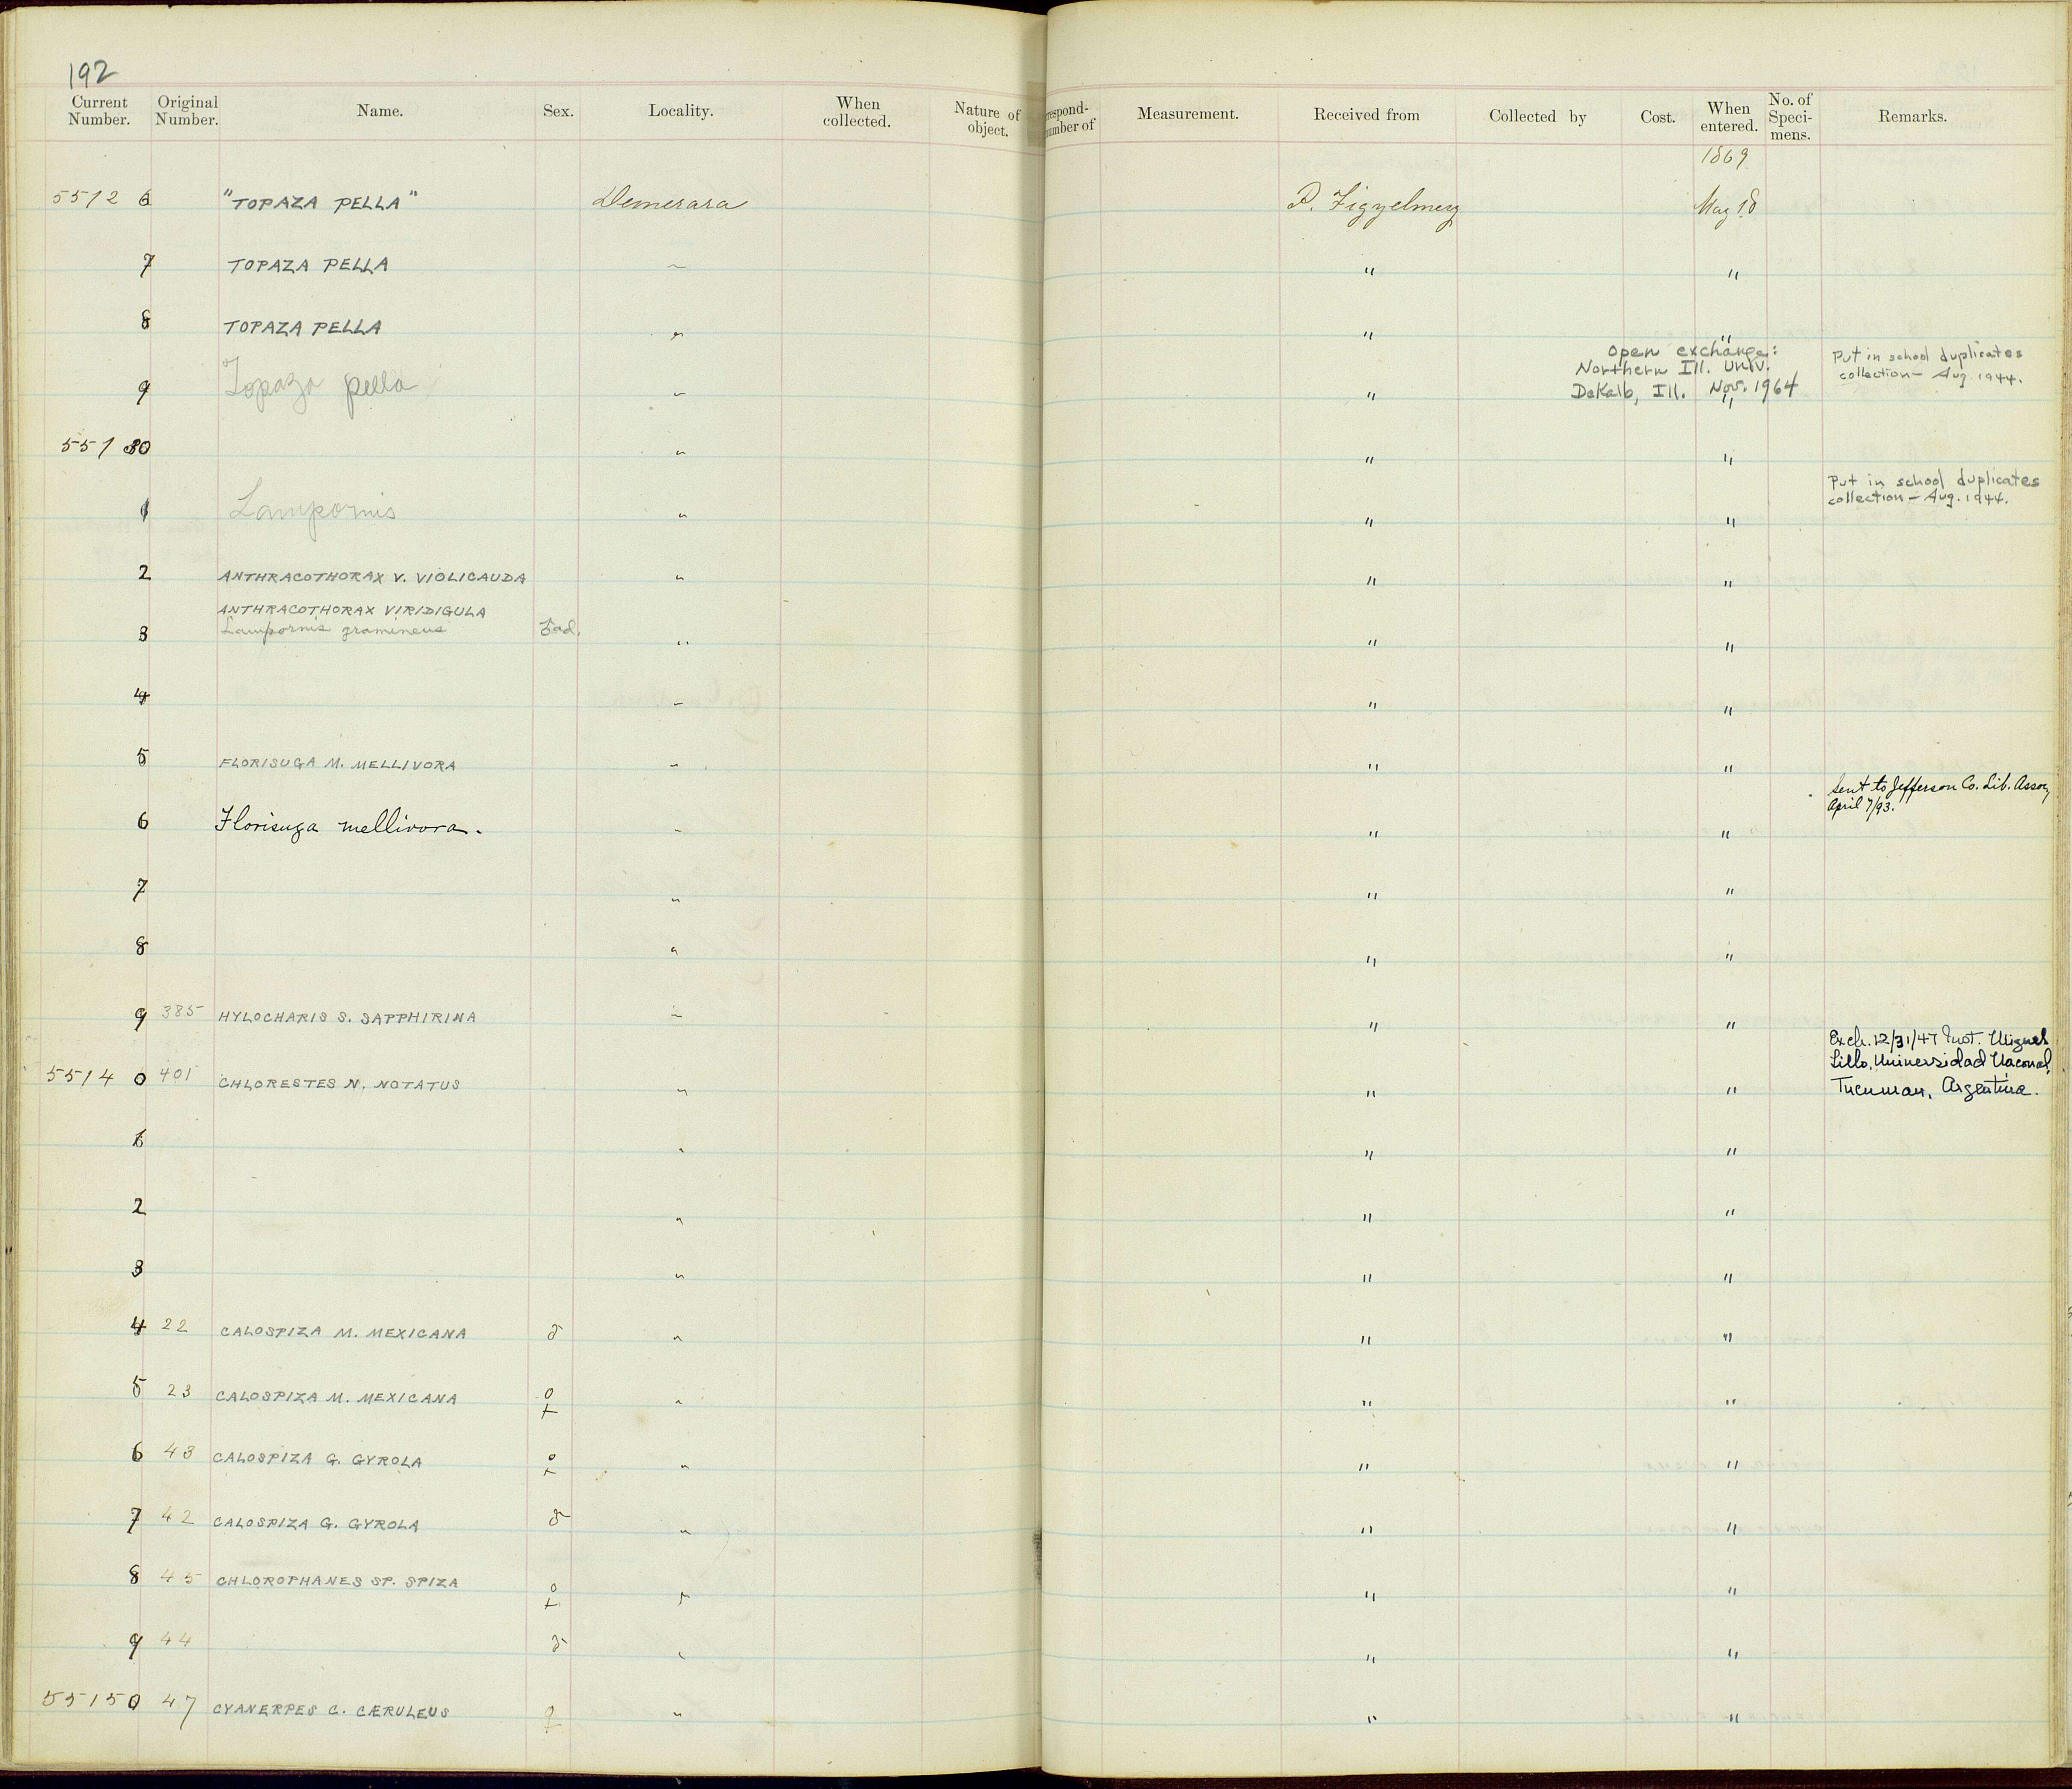 192
Current Number. Original Number. Name. Sex. Locality. When collected. Nature of object. respond- umber of Measurement. Received from Collected by Cost. When entered. No. of Speci- mens. Remarks.
1869
55126 "TOPAZA PELLA" Demerara May 18
7 TOPAZA PELLA " " "
8 TOPAZA PELLA " " "
Open exchange: Put in school duplicates
Northern Ill. Univ. collection — Aug 1944.
9 Topaza pella " " DeKalb, Ill. Nov. 1964 "
55130 " " "
Put in school duplicates
collection — Aug. 1944.
1 Lampornis " " "
2 ANTHRACOTHORAX V. VIOLICAUDA " " "
ANTHRACOTHORAX VIRIDIGULA
3 Lampornis gramineus ♂ad. " " "
4 " " "
5 FLORISUGA M. MELLIVORA " " "
Sent to Jefferson Co. Lib. Assoc,
April 7/93.
6 Florisuga mellivora. " " "
7 " " "
8 " " "
9 385 HYLOCHARIS S. SAPPHIRINA " " "
Exch. 12/31/47 Inst. Miguel
Lillo, Universidad Nacional,
55140 401 CHLORESTES N. NOTATUS " " " Tucuman, Argentina.
1 " " "
2 " " "
3 " " "
4 22 CALOSPIZA M. MEXICANA ♂ " " "
5 23 CALOSPIZA M. MEXICANA ♀ " " "
6 43 CALOSPIZA G. GYROLA ♀ " " "
7 42 CALOSPIZA G. GYROLA ♂ " " "
8 45 CHLOROPHANES SP. SPIZA ♀ " " "
9 44 ♂ " " "
55150 47 CYANERPES C. CÆRULEUS ♀ " " "